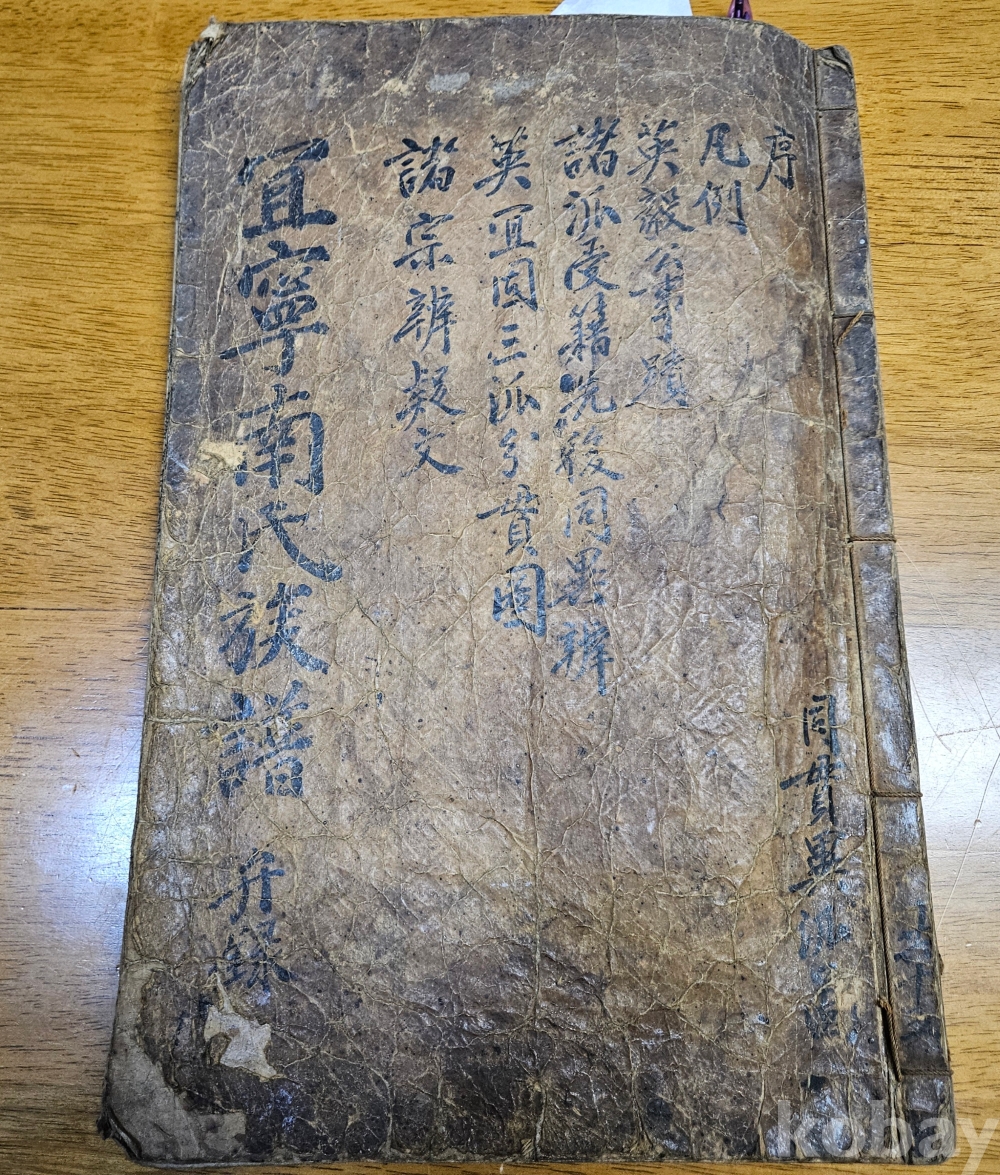 序
凡例
英毅公事蹟
諸派受籍先後同異辨
英冝固三派分貫圖
諸宗辨疑文
冝寧南氏族譜 弁錄
同貫異派
kobay